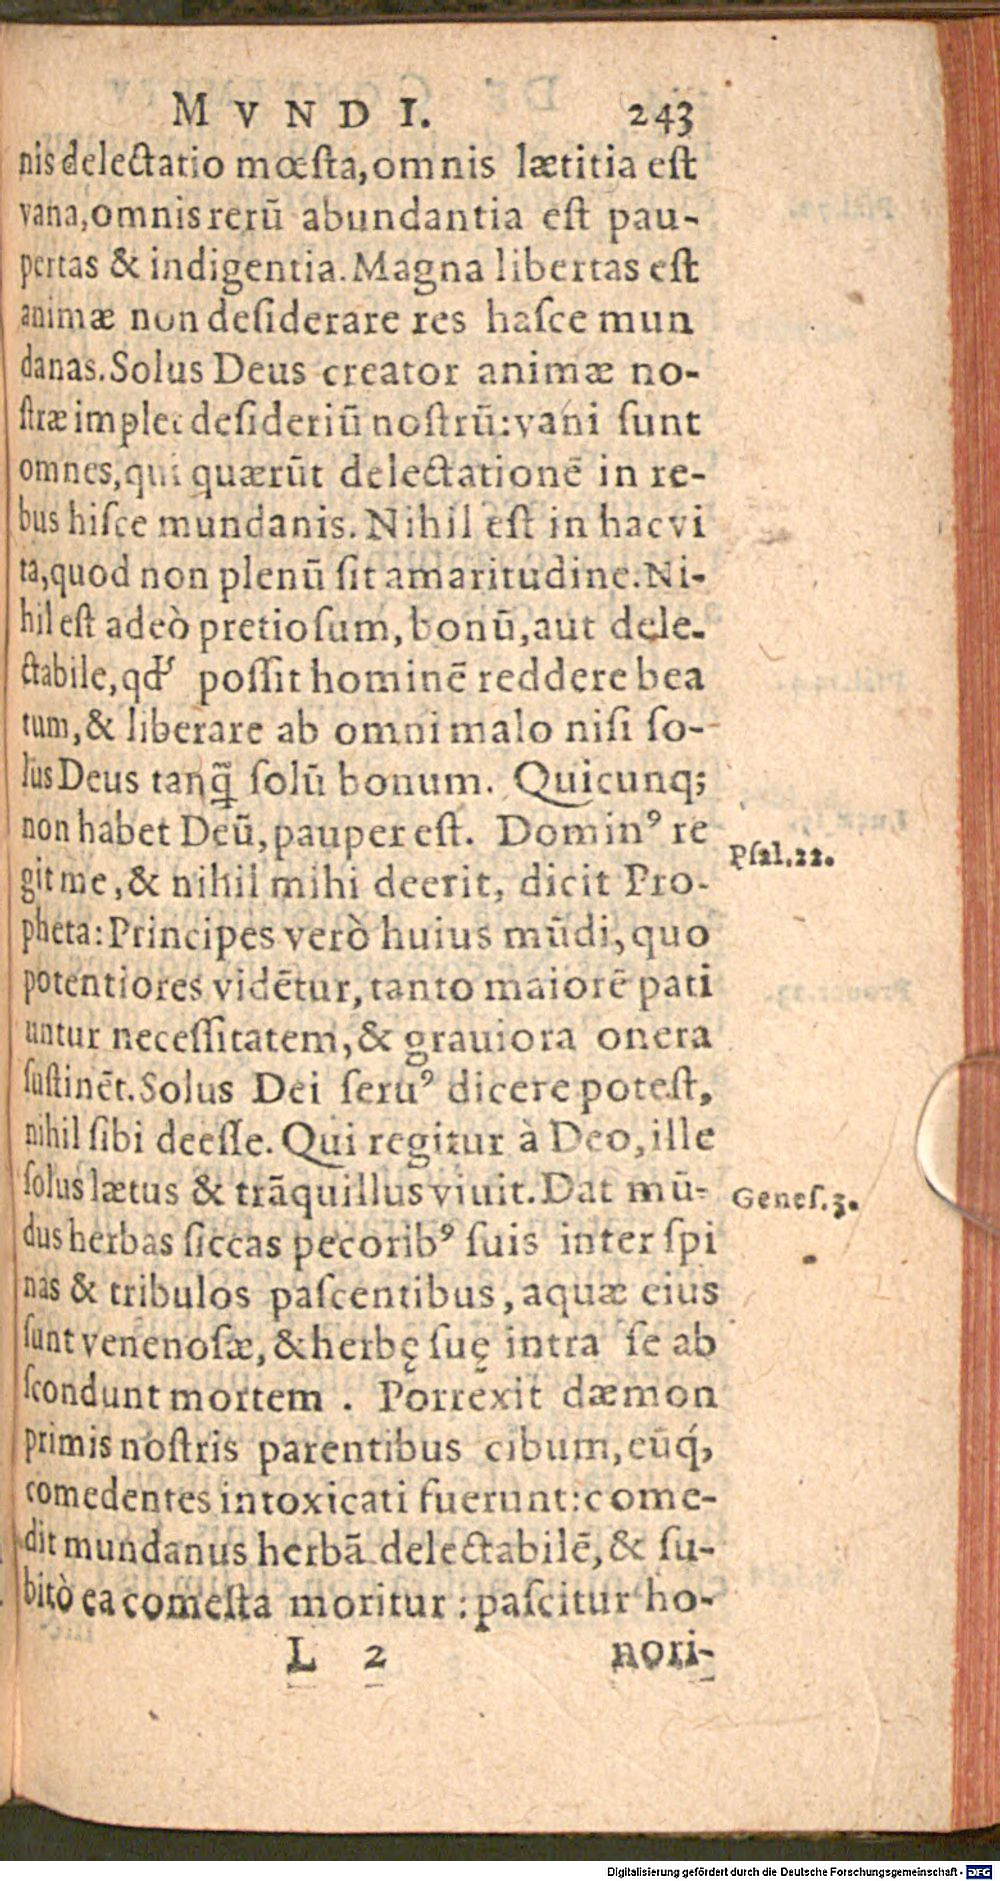 MVNDI. 243
nis delectatio mœſta, omnis lætitia eſt
vana, omnis rerū abundantia eſt pau-
pertas & indigentia. Magna libertas eſt
animæ non deſiderare res haſce mun
danas. Solus Deus creator animæ no-
ſtræ implet deſideriū noſtrū: vani ſunt
omnes, qui quærūt delectationē in re-
bus hiſce mundanis. Nihil eſt in hac vi
ta, quod non plenū ſit amaritudine. Ni-
hil eſt adeò pretioſum, bonū, aut dele-
ctabile, qđ poſſit hominē reddere bea
tum, & liberare ab omni malo niſi ſo-
lus Deus tanq̃ ſolū bonum. Quicunq;
non habet Deū, pauper eſt. Dominꝰ re
git me, & nihil mihi deerit, dicit Pro-
Pſal. 22.
pheta: Principes verò huius mūdi, quo
potentiores vidētur, tanto maiorē pati
untur neceſſitatem, & grauiora onera
ſuſtinēt. Solus Dei ſeruꝰ dicere poteſt,
nihil ſibi deeſſe. Qui regitur à Deo, ille
ſolus lætus & trāquillus viuit. Dat mū-
Geneſ. 3.
dus herbas ſiccas pecoribꝰ ſuis inter ſpi
nas & tribulos paſcentibus, aquæ eius
ſunt venenoſæ, & herbę ſuę intra ſe ab
ſcondunt mortem. Porrexit dæmon
primis noſtris parentibus cibum, eūq́,
comedentes intoxicati fuerunt: come-
dit mundanus herbā delectabilē, & ſu-
bitò ea comeſta moritur: paſcitur ho-
L 2 nori-
Digitalisierung gefördert durch die Deutsche Forschungsgemeinschaft - DFG